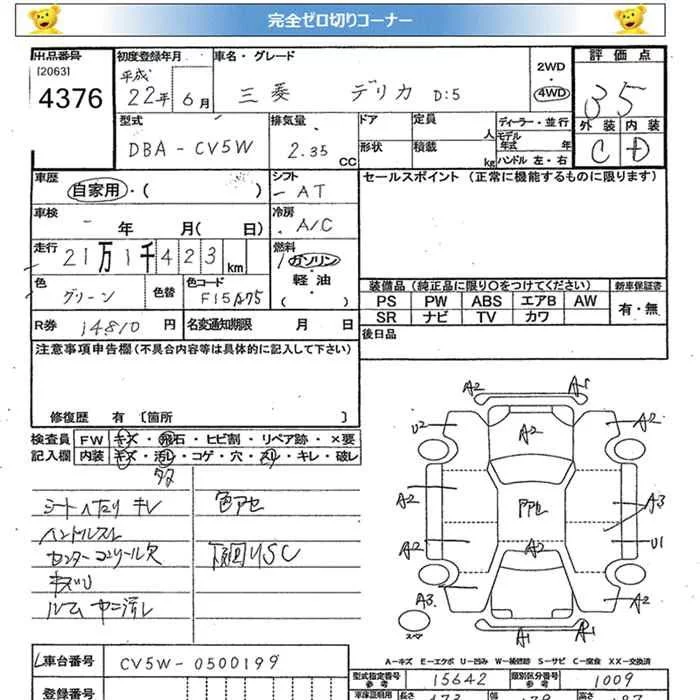 完全ゼロ切りコーナー
出品番号 初度登録年月 車名・グレード 2WD 評価点
[2063] 平成
4376 22年 6月 三菱 デリカ D:5 4WD 3.5
型式 排気量 ドア 定員 ディーラー・並行 外装 内装
DBA-CV5W 2.35 CC 形状 積載 人 kg モデル年式 年 ハンドル 左・右 C D
車歴 シフト セールスポイント (正常に機能するものに限ります)
自家用・( ) AT
車検 冷房
年 月( 日) A/C
走行 燃料
21万1千423km ガソリン
軽油
( )
色 色替 色コード 装備品 (純正品に限り〇をつけてください) 新車保証書
グリーン F15A75 PS PW ABS エアB AW 有・無
SR ナビ TV カワ
R券 14810円 名変通知期限 月 日 後日品
注意事項申告欄(不具合内容等は具体的に記入して下さい)
修復歴 有 〔箇所 〕
検査員 FW キズ・飛石・ヒビ割・リペア跡・×要
記入欄 内装 キズ・汚レ・コゲ・穴・スレ・キレ・破レ
シートヘタリ キレ 色アセ
ハンドルスレ
センターコンソール欠 下回りSC
キズ
A2 A1
U2 A2 A2
A2 A3
A2 A2 U1
A3 A2
スペア A1 A1
A-キズ E-エクボ U-凹み W-補修跡 S-サビ C-腐食 XX-交換済
車台番号 CV5W-0500199 型式指定番号 参考 15642 類別区分番号 参考 1009
登録番号 車庫証明用 長さ